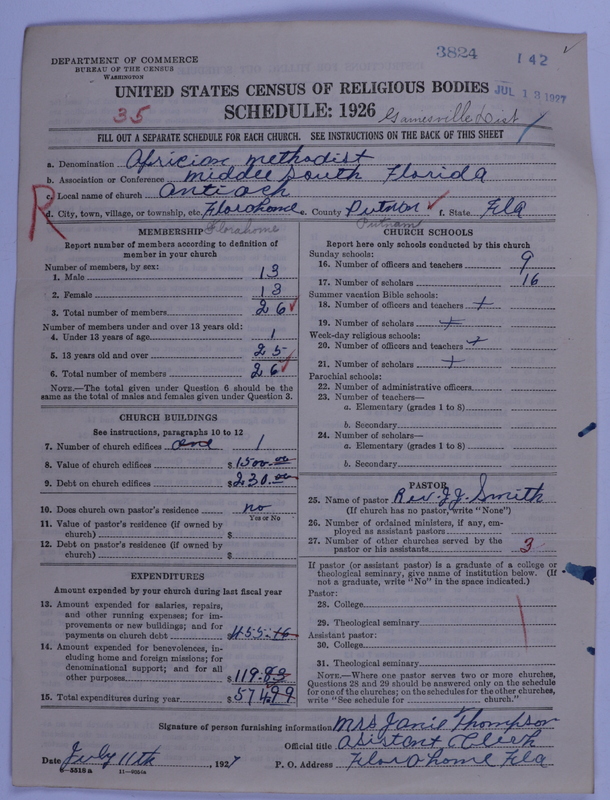 3824 142
DEPARTMENT OF COMMERCE
BUREAU OF THE CENSUS
WASHINGTON
UNITED STATES CENSUS OF RELIGIOUS BODIES JUL 13 1927
35 SCHEDULE: 1926 Gainesville Dist
FILL OUT A SEPARATE SCHEDULE FOR EACH CHURCH. SEE INSTRUCTIONS ON THE BACK OF THIS SHEET
a. Denomination Africian Methodist
b. Association or Conference Middle South Florida
c. Local name of church Antioch
R d. City, town, village, or township, etc. Florahome e. County Putman f. State Fla
Florahome Putnam
MEMBERSHIP
Report number of members according to definition of
member in your church
Number of members, by sex:
1. Male 13
2. Female 13
3. Total number of members 26
Number of members under and over 13 years old:
4. Under 13 years of age 1
5. 13 years old and over 25
6. Total number of members 26
NOTE.—The total given under Question 6 should be
same as the total of males and females given under Question 3.
CHURCH BUILDINGS
See instructions, paragraphs 10 to 12
7. Number of church edifices one 1
8. Value of church edifices $1500.00
9. Debt on church edifices $230.00
10. Does church own pastor's residence no
Yes or No
11. Value of pastor's residence (if owned by
church) $
12. Debt on pastor's residence (if owned by
church) $
EXPENDITURES
Amount expended by your church during last fiscal year
13. Amount expended for salaries, repairs,
and other running expenses; for im-
provements or new buildings; and for
payments on church debt 455.16
14. Amount expended for benevolences, in-
cluding home and foreign missions; for
denominational support; and for all
other purposes $119.83
15. Total expenditures during year $574.99
CHURCH SCHOOLS
Report here only schools conducted by this church
Sunday schools:
16. Number of officers and teachers 9
17. Number of scholars 16
Summer vacation Bible schools:
18. Number of officers and teachers +
19. Number of scholars +
Week-day religious schools:
20. Number of officers and teachers +
21. Number of scholars +
Parochial schools:
22. Number of administrative officers
23. Number of teachers—
a. Elementary (grades 1 to 8)
b. Secondary
24. Number of scholars—
a. Elementary (grades 1 to 8)
b. Secondary
PASTOR
25. Name of pastor Rev. J.J. Smith
(If church has no pastor, write "None")
26. Number of ordained ministers, if any, em-
ployed as assistant pastors
27. Number of other churches served by the
pastor or his assistants 3
If pastor (or assistant pastor) is a graduate of a college or
theological seminary, give name of institution below. (If
not a graduate, write "No" in the space indicated.)
Pastor:
28. College
29. Theological seminary
Assistant pastor:
30. College
31. Theological seminary
NOTE.—Where one pastor serves two or more churches,
Questions 28 and 29 should be answered only on the schedule
for one of the churches; on the schedules for the other churches,
write "See schedule for church."
Signature of person furnishing information Mrs Janie Thompson
Official title Asistant Clerk
Date July 11th, 1927 P. O. Address Florahome Fla